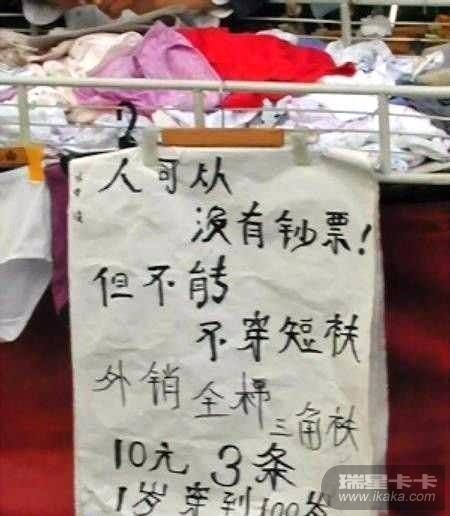 人可从
没有钞票!
但不能
不穿短衭
外销全棉三角衭
10元 3条
1岁穿到100岁
瑞星卡卡
www.ikaka.com